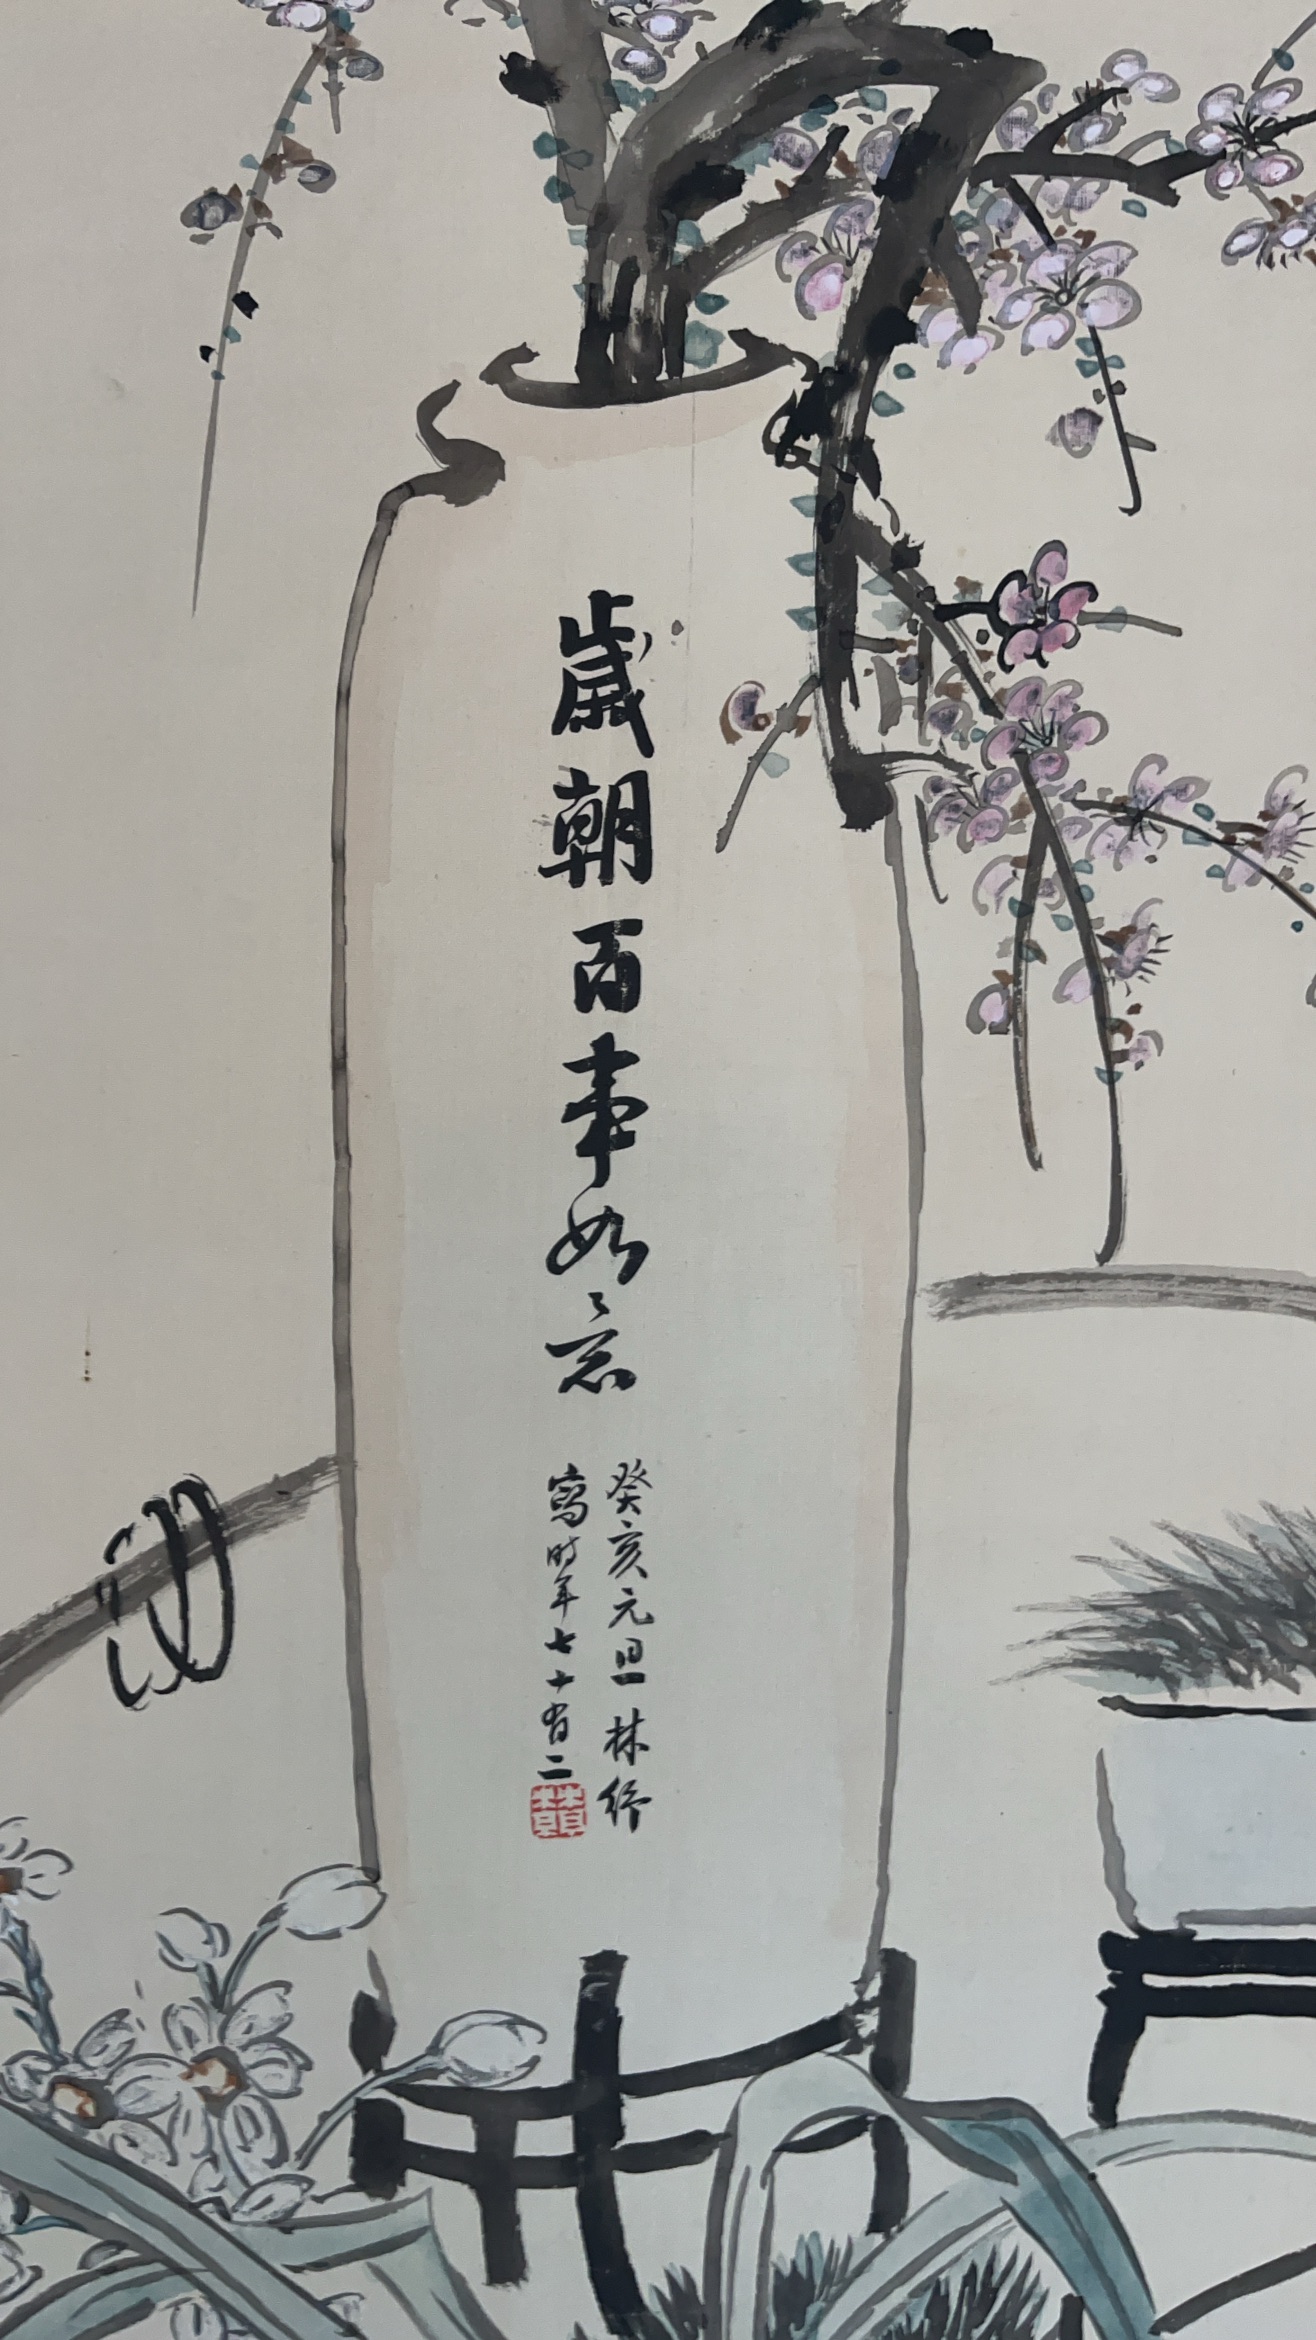 歲朝百事如意
癸亥元旦林紓
寫時年七十有二